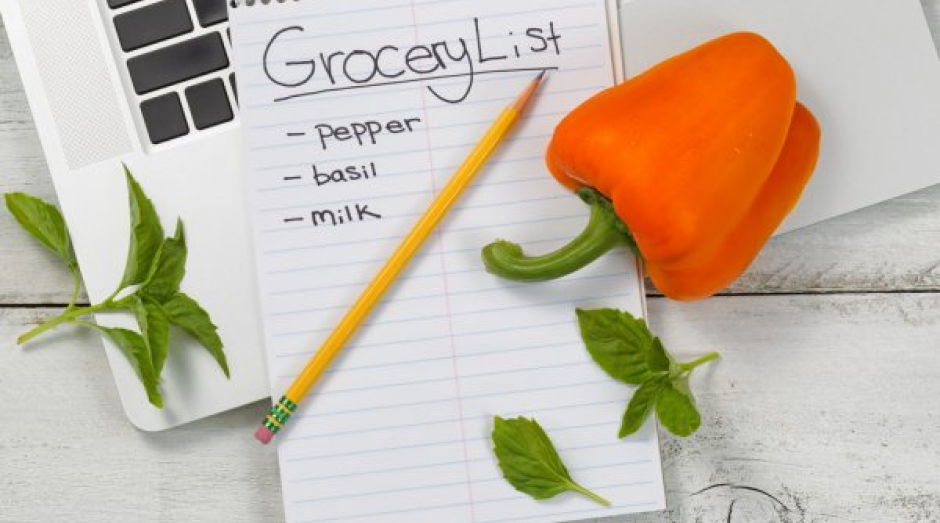 Grocery List
- pepper
- basil
- milk